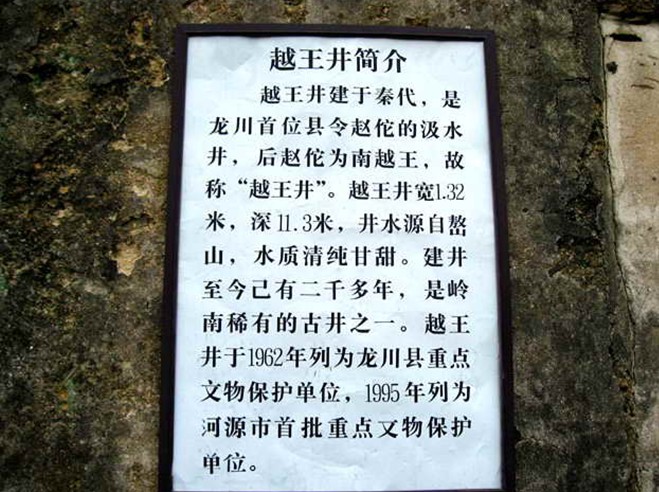 越王井简介
越王井建于秦代，是
龙川首位县令赵佗的汲水
井，后赵佗为南越王，故
称“越王井”。越王井宽1.32
米，深11.3米，井水源自嶅
山，水质清纯甘甜。建井
至今己有二千多年，是岭
南稀有的古井之一。越王
井于1962年列为龙川县重点
文物保护单位，1995年列为
河源市首批重点文物保护
单位。